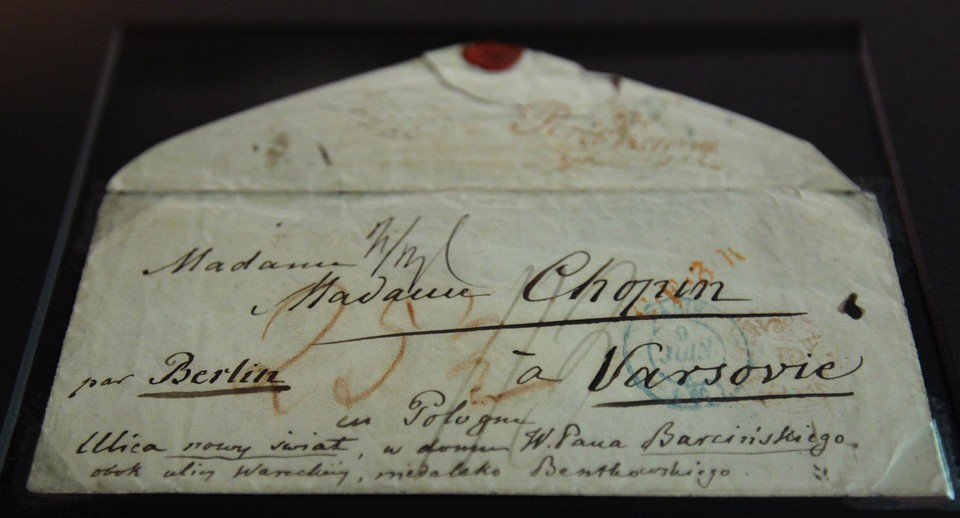 Madame
Madame Chopin
à Varsovie
par Berlin
en Pologne
Ulica nowy świat, w domu W. Pana Barcińskiego.
obok ulicy Wareckiej, niedaleko Bentkowskiego.
25
9
JUIN